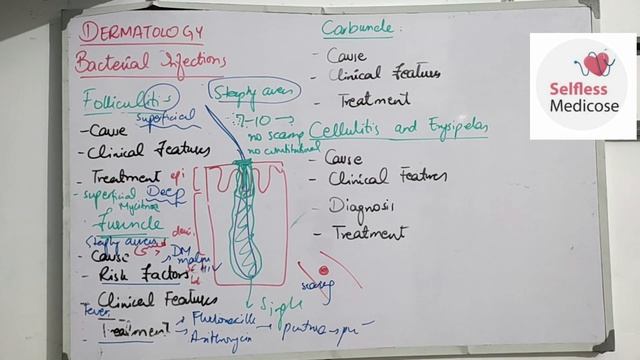 DERMATOLOGY
Bacterial Infections
Folliculitis
Staphy aureus
superficial
7-10 →
no scarring
no constitutional
- Cause
- Clinical Features
- Treatment
epi
- superficial Deep
Furuncle
Staphy aureus
- Cause
DM
HIV
- Risk Factors
- Clinical Features
Fever
- Treatment
scarring
Single
Carbuncle:
- Cause
- Clinical Features
- Treatment
Cellulitis and Erysipelas
- Cause
- Clinical Features
- Diagnosis
- Treatment
Selfless
Medicose